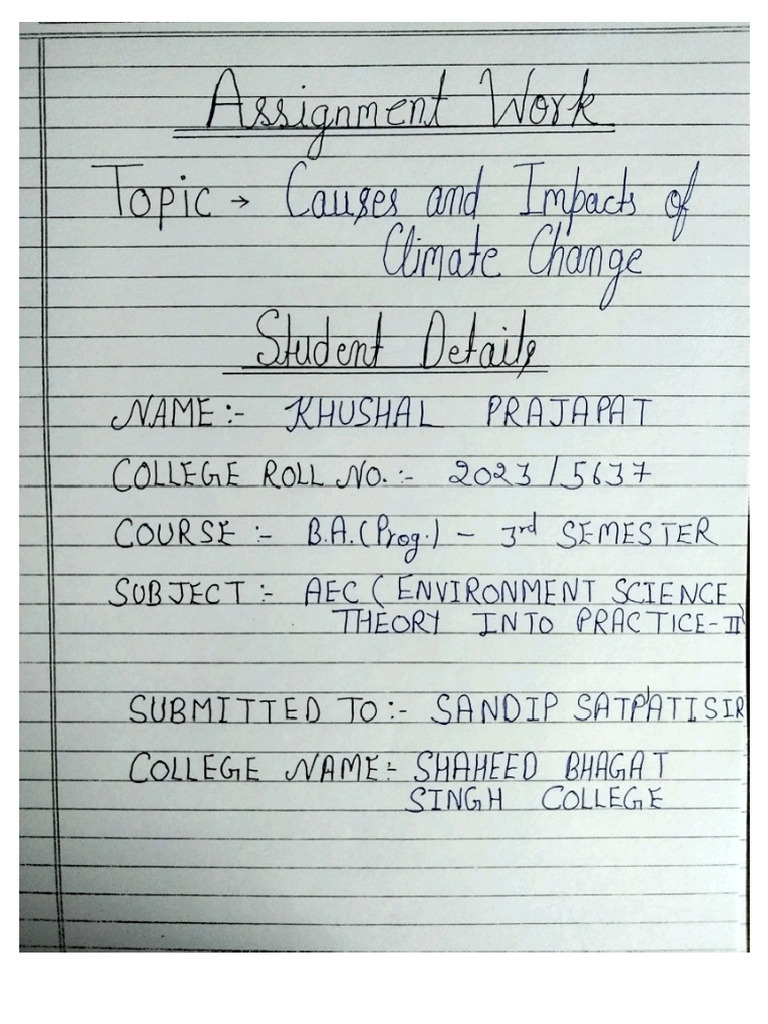 Assignment Work
Topic → Causes and Impacts of
Climate Change
Student Details
NAME :- KHUSHAL PRAJAPAT
COLLEGE ROLL NO. :- 2023/5637
COURSE :- B.A.(Prog.) - 3rd SEMESTER
SUBJECT :- AEC (ENVIRONMENT SCIENCE
THEORY INTO PRACTICE-II)
SUBMITTED TO :- SANDIP SATPATI SIR
COLLEGE NAME :- SHAHEED BHAGAT
SINGH COLLEGE